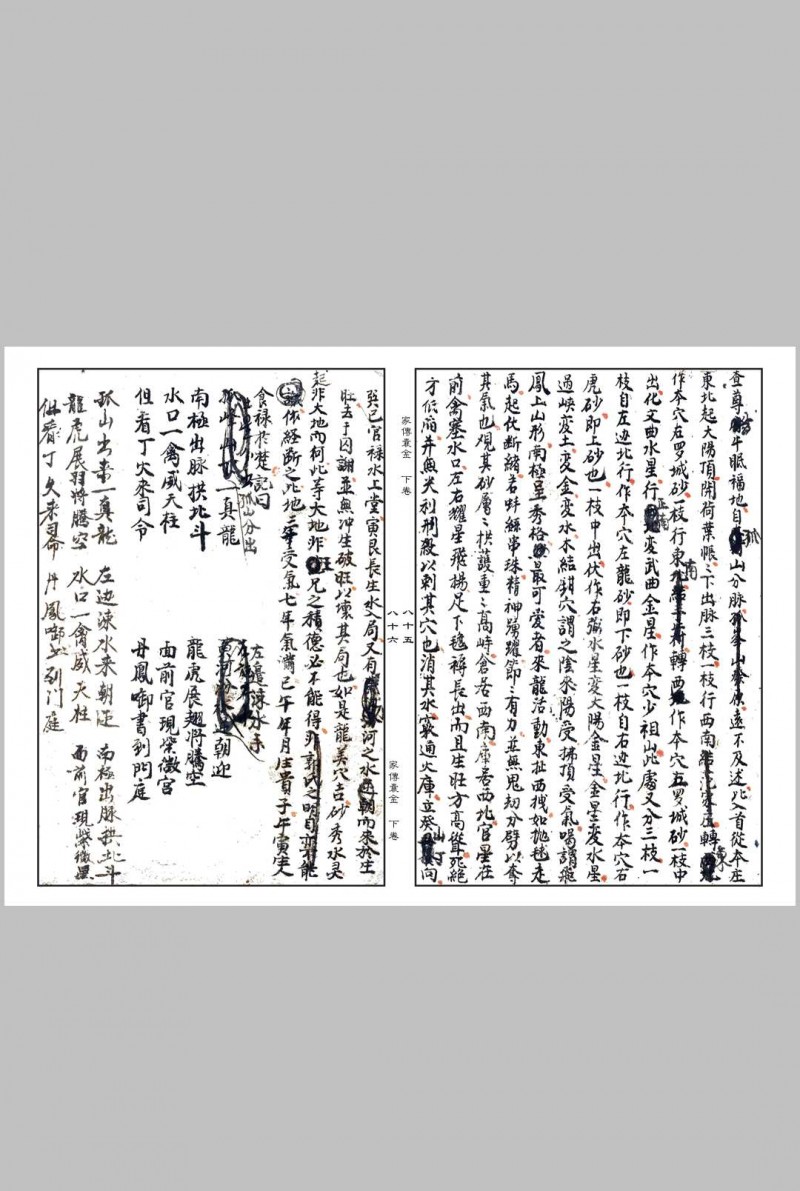 查尊眠福地自山分脈孤峯山發原遠不及述此入首從本庄
東北起大陽頂開荷葉帳帳下出脈三枝一枝行西南轉
作本穴左罗城砂一枝行東南轉西作本穴右罗城砂一枝中
出化文曲水星行正南变武曲金星作本穴少祖山此處又分三枝一
枝自左边北行作本穴左龍砂即下砂也一枝自右边北行作本穴右
虎砂即上砂也一枝中出伏作石弼水星变大陽金星金星变水星
過峽变土变金变水木結鉗穴謂之陰來陽受拂頂受氣喝謂飛
鳳上山形南極呈秀格最可爱者來龍活動東扯西拽如拋毬走
馬起伏断續若蛛絲串珠精神踴躍節節有力並無鬼刧分劈以奪
其氣也观其砂層層拱護重重高峙倉居西南庫居西北官星在
前禽塞水口左右耀星飛揚足下毬褥長出而且生旺方高聳死絕
方低陷并無尖利刑殺以刺其穴也消其水竅通火庫立癸山丁向
家傳彚金 下卷
八十五
八十六
家傳彚金 下卷
巽巳官禄水上堂寅艮長生水入局又有河之水逆朝而來於生
旺去于囚謝並無冲生破旺以壞其局也如是龍美穴吉砂秀水灵
起非大地而何此等大地非兄之積德必不能得非郭氏之明目亦不能
識依經断之此地三年受氣七年氣满巳午年月主貴子午寅生人
食禄於楚記曰
孤山分出一真龍 左邊涑水來朝迎
南極出脉拱北斗 龍虎展翅將騰空
水口一禽威天柱 面前官現紫微宫
但看丁火來司令 丹鳳啣書到門庭
孤山出来一真龍 左边涑水来朝迎 南極出脉拱北斗
龍虎展羽將騰空 水口一禽威天柱 面前官現紫微星
但看丁火来司命 丹鳳啣書到門庭